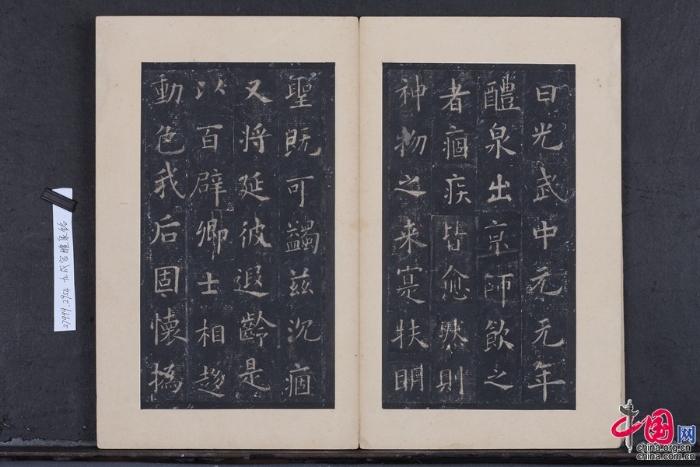 曰光武中元元年
醴泉出京師飲之
者痼疾皆愈然則
神物之来寔扶明
聖既可蠲兹沉痼
又将延彼遐齡是
以百辟卿士相趍
動色我后固懷撝
中国网
china.org.cn
china.com.cn